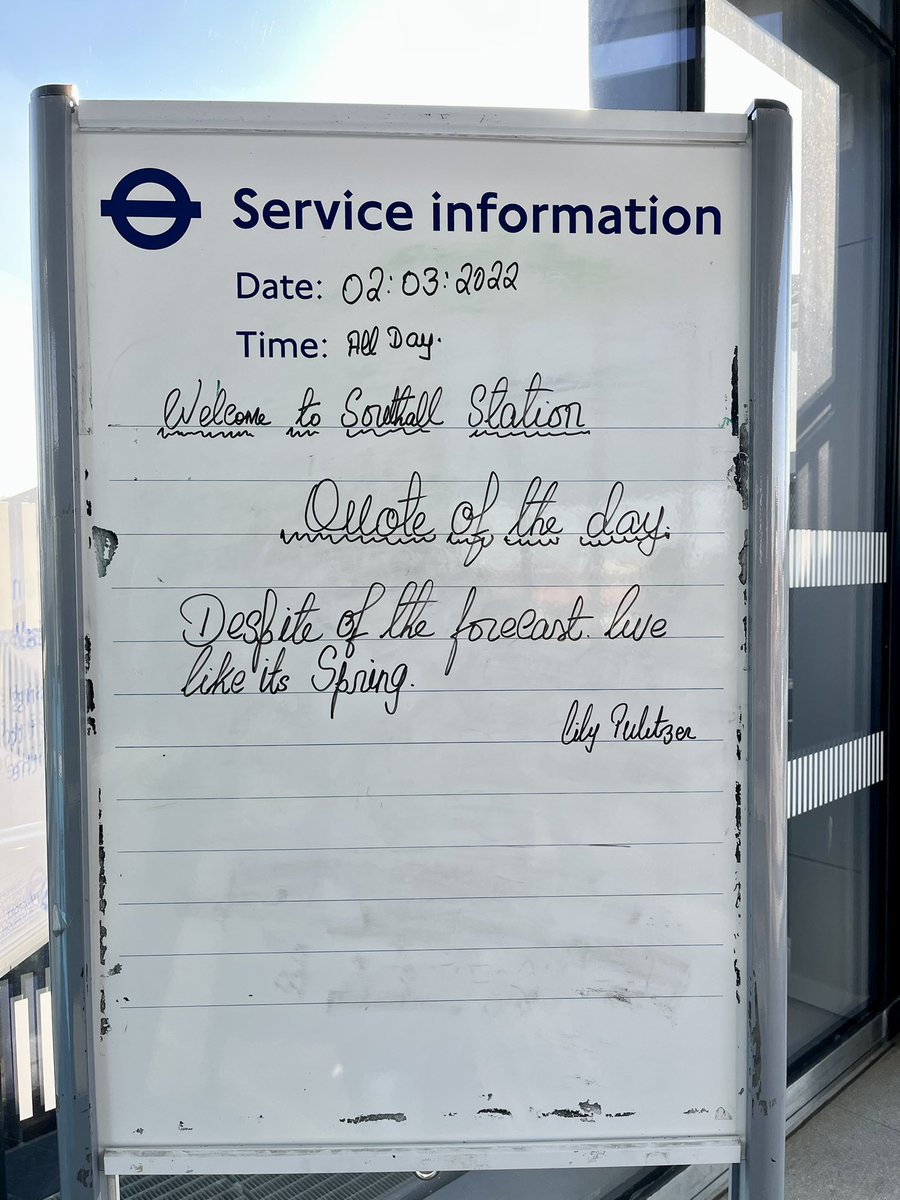 Service information
Date: 02:03:2022
Time: All Day.
Welcome to Southall Station
Quote of the day.
Despite of the forecast. live
like its Spring.
Lily Pulitzer